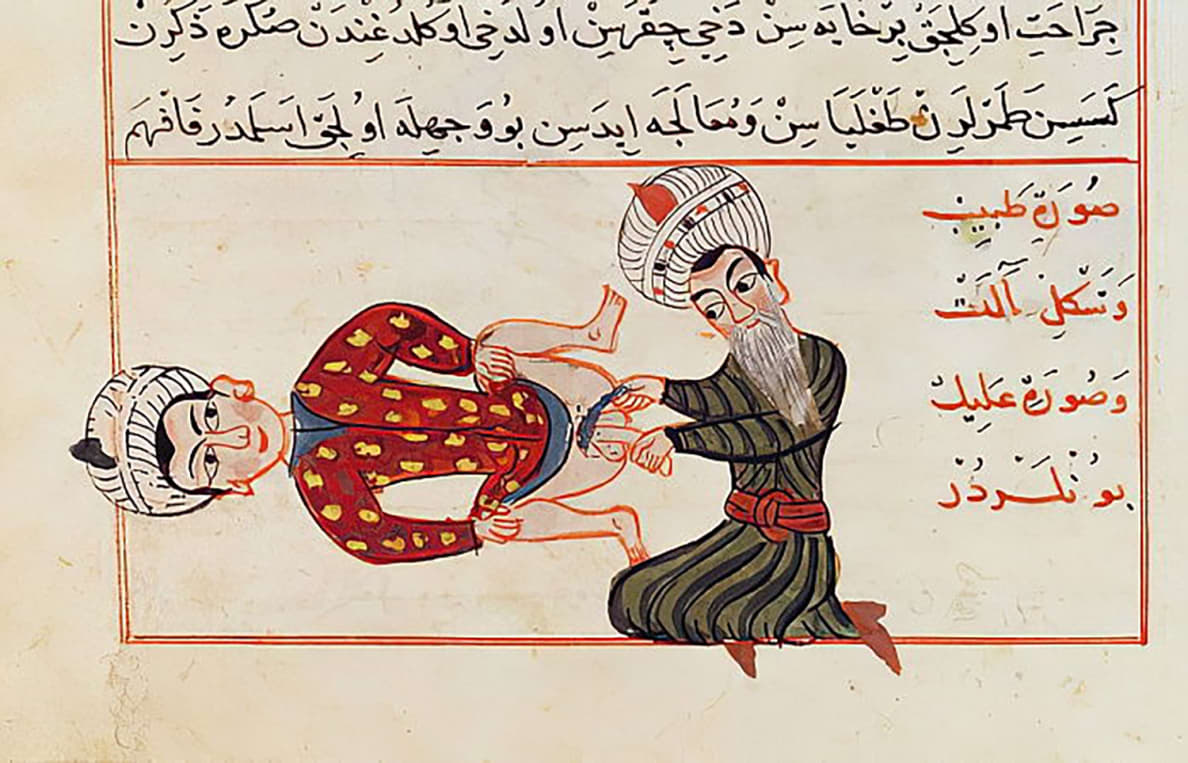 جراحت اوكلجق بر خايه سن دخي چقرسن اولدخي اوكلدغندن صكره ذكرك
كسسن طمرلرن طغلياسن ومعالجه ايدسن بو وجهله اولجق اسلمدر فافهم
صورة طبيب
وشكل آلت
وصورة عليل
بونلردر